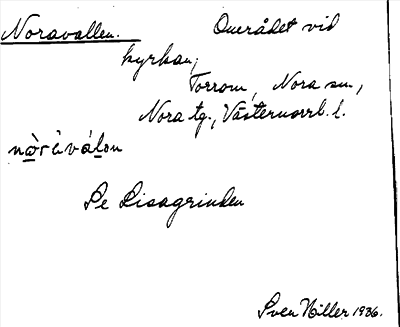 Noravallen. Området vid
kyrkan,
Torrom, Nora sn,
Nora tg., Västernorrl. l.
nòràválon
Se Lisagrinden
Sven Hiller 1936.